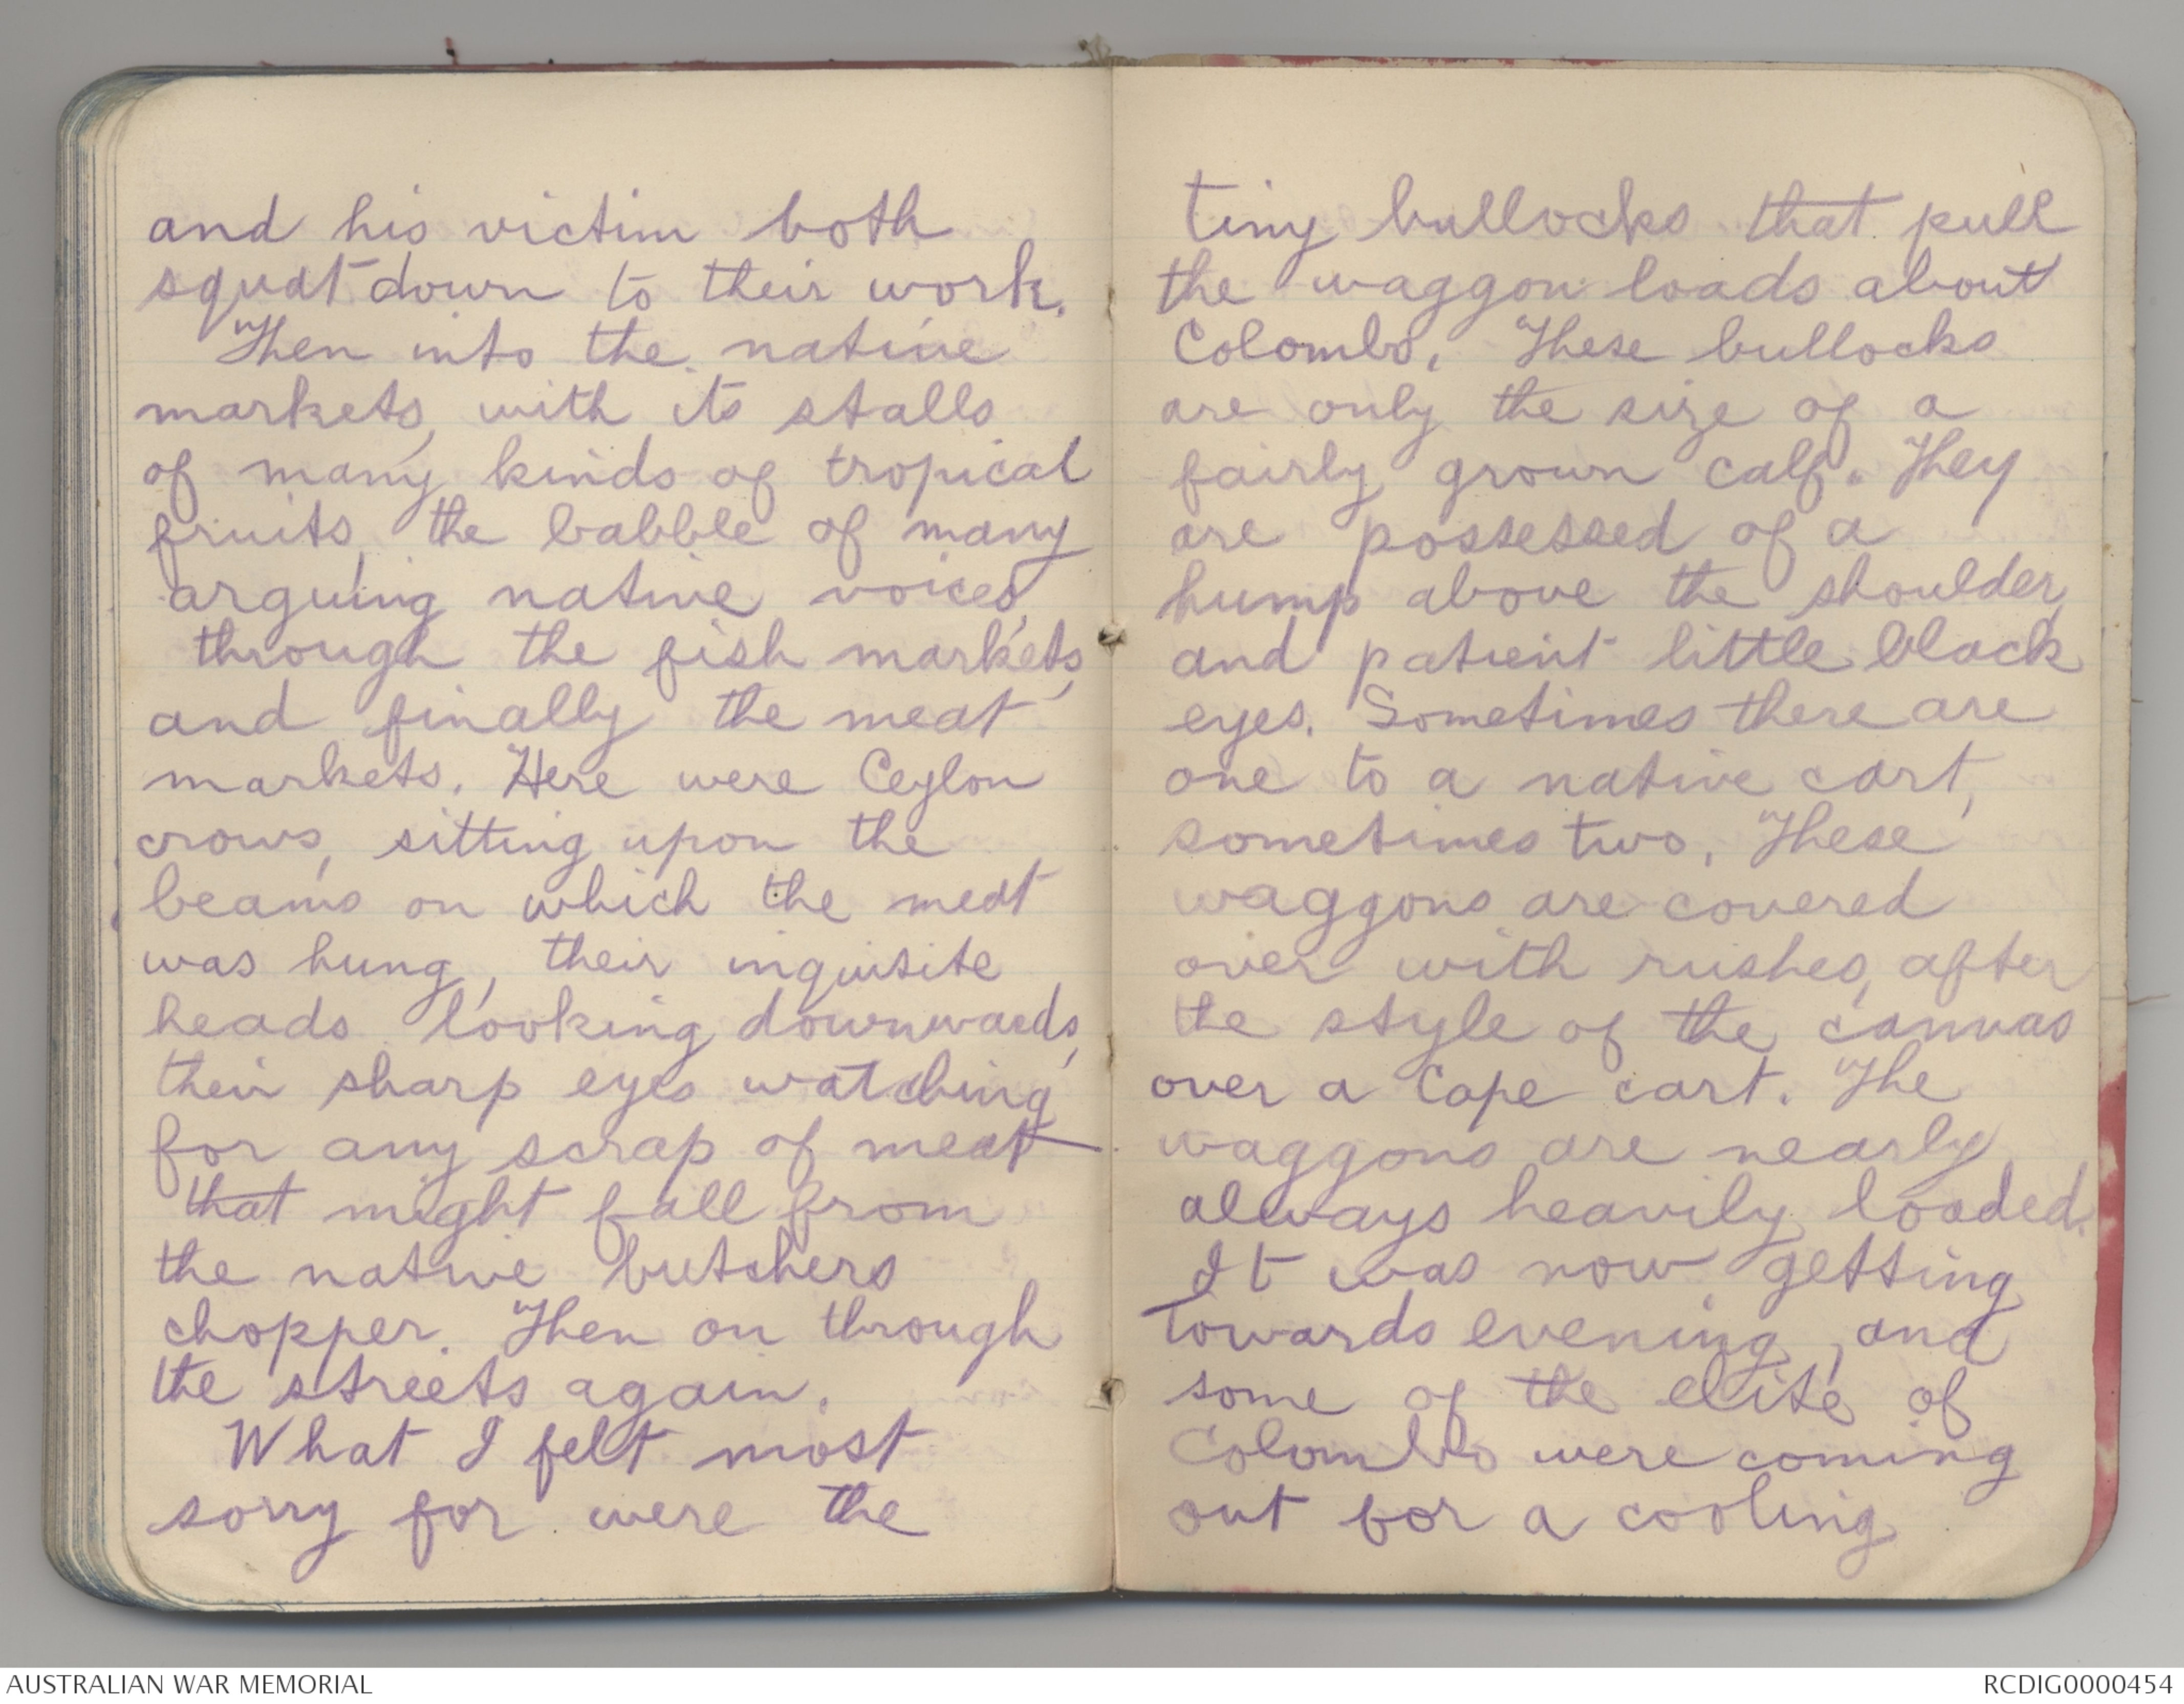 and his victim both
squat down to their work.
Then into the native
markets, with its stalls
of many kinds of tropical
fruits, the babble of many
arguing native voices,
through the fish markets,
and finally the meat
markets. Here were Ceylon
crows, sitting upon the
beams on which the meat
was hung, their inquisite
heads looking downwards,
their sharp eyes watching
for any scrap of meat
that might fall from
the native butchers
chopper. Then on through
the streets again.
What I felt most
sorry for were the
tiny bullocks that pull
the waggon loads about
Colombo. These bullocks
are only the size of a
fairly grown calf. They
are possessed of a
hump above the shoulder,
and patient little black
eyes. Sometimes there are
one to a native cart,
sometimes two. These
waggons are covered
over with rushes, after
the style of the canvas
over a Cape cart. The
waggons are nearly
always heavily loaded.
It was now getting
towards evening, and
some of the elite of
Colombo were coming
out for a cooling
AUSTRALIAN WAR MEMORIAL
RCDIG0000454